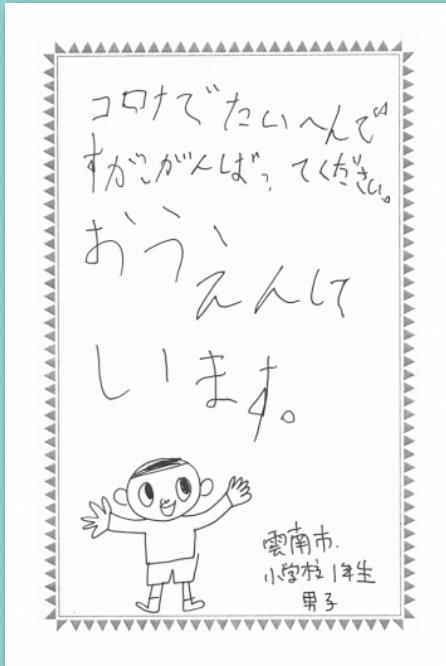 コロナでたいへんで
すがこがんばってください。
おうえんして
います。
雲南市.
小学校1年生
男子